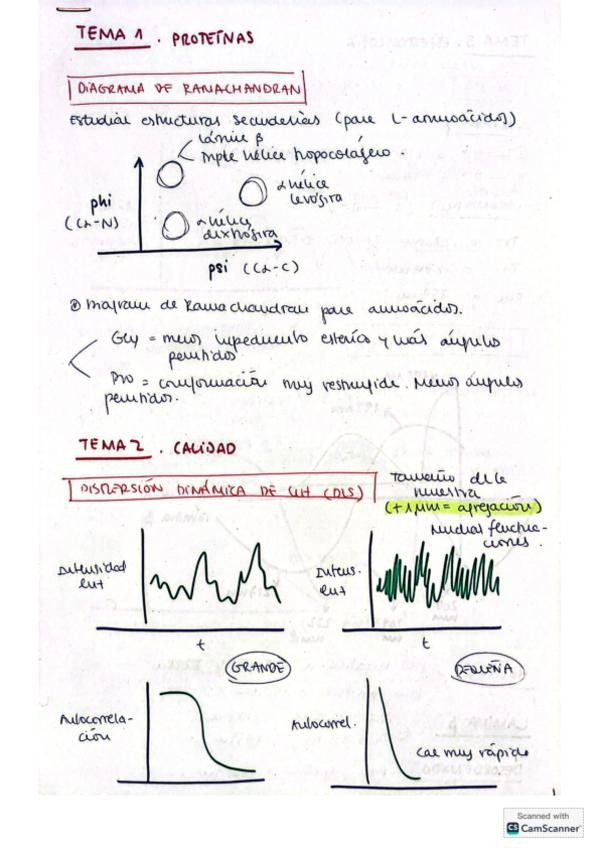 TEMA 1. PROTEÍNAS
DIAGRAMA DE RAMACHANDRAN
Estudiar estructuras secundarias (para L-aminoácidos)
Lámina β
Triple hélice tropocolágeno.
α hélice
levógira
phi
(Cα-N)
α hélice
dextrógira
psi (Cα-C)
Diagrama de Ramachandran para aminoácidos.
Gly = menor impedimento estérico y más ángulos
permitidos
Pro = conformación muy restringida. Menos ángulos
permitidos.
TEMA 2. CALIDAD
DISPERSIÓN DINÁMICA DE LUZ (DLS)
Tamaño de la
muestra
(+1μm = agregación)
Muchas fluctua-
ciones.
Intensidad
luz
Intens.
luz
t
t
GRANDE
PEQUEÑA
Autocorrela-
ción
Autocorrel.
Cae muy rápido
Scanned with
CS CamScanner